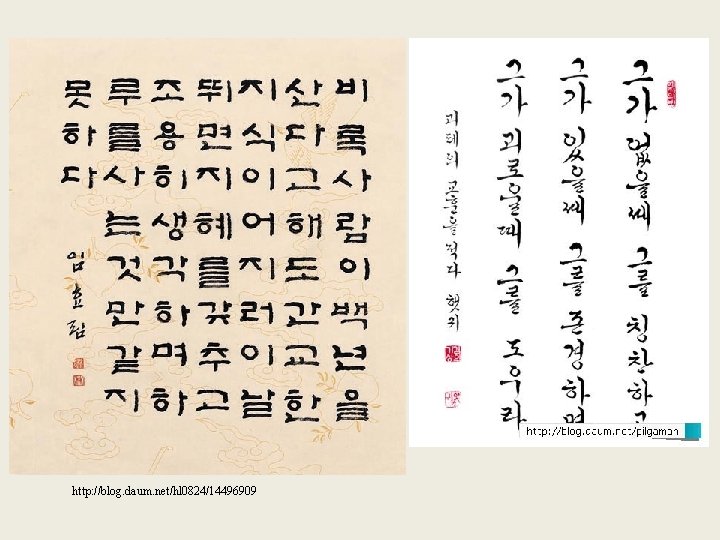 비록사람이백년을
산다고해도간교한
지식이어지러이날
뛰면지혜를갖추고
조용히생각하며하
루를사는것만같지
못하다
그가 없을때 그를 칭찬하고
그가 있을때 그를 존경하며
그가 괴로울때 그를 도우라
괴테의 교훈을 적다 햇귀
http://blog.daum.net/pilgaman
http://blog.daum.net/hl0824/14496909